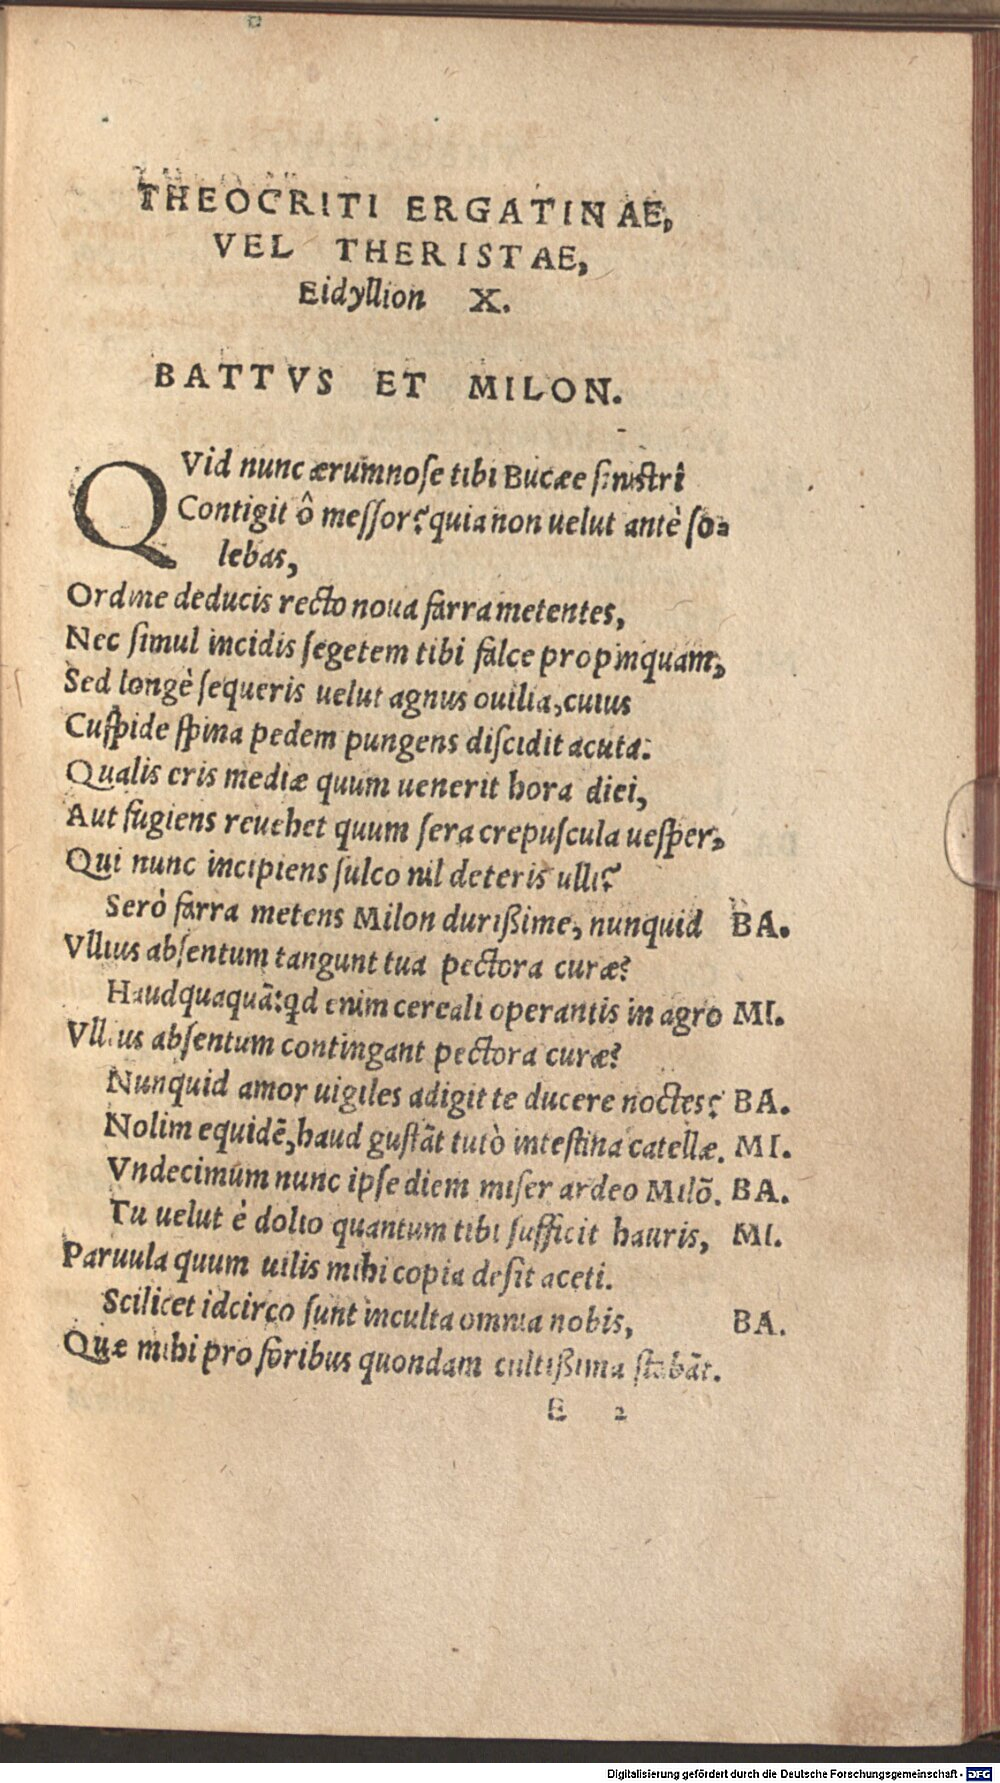 THEOCRITI ERGATINAE,
VEL THERISTAE,
Eidyllion X.
BATTVS ET MILON.
QVid nunc ærumnose tibi Bucæe sinistri
Contigit ô messor? quia non uelut antè so-
lebas,
Ordine deducis recto noua farra metentes,
Nec simul incidis segetem tibi falce propinquam,
Sed longè sequeris uelut agnus ouilia, cuius
Cuspide spina pedem pungens discidit acuta:
Qualis cris mediæ quum uenerit hora diei,
Aut fugiens reuehet quum sera crepuscula uesper,
Qui nunc incipiens sulco nil deteris ulli?
Serò farra metens Milon durißime, nunquid BA.
Vllius absentum tangunt tua pectora curæ?
Haudquaquā: qd enim cereali operantis in agro MI.
Vllius absentum contingant pectora curæ?
Nunquid amor uigiles adigit te ducere noctes? BA.
Nolim equidē, haud gustāt tutò intestina catellæ. MI.
Vndecimum nunc ipse diem miser ardeo Milō. BA.
Tu uelut è dolio quantum tibi sufficit hauris, MI.
Paruula quum uilis mihi copia desit aceti.
Scilicet idcirco sunt inculta omnia nobis, BA.
Quæ mihi pro foribus quondam cultißima stabāt.
E 2
Digitalisierung gefördert durch die Deutsche Forschungsgemeinschaft - DFG